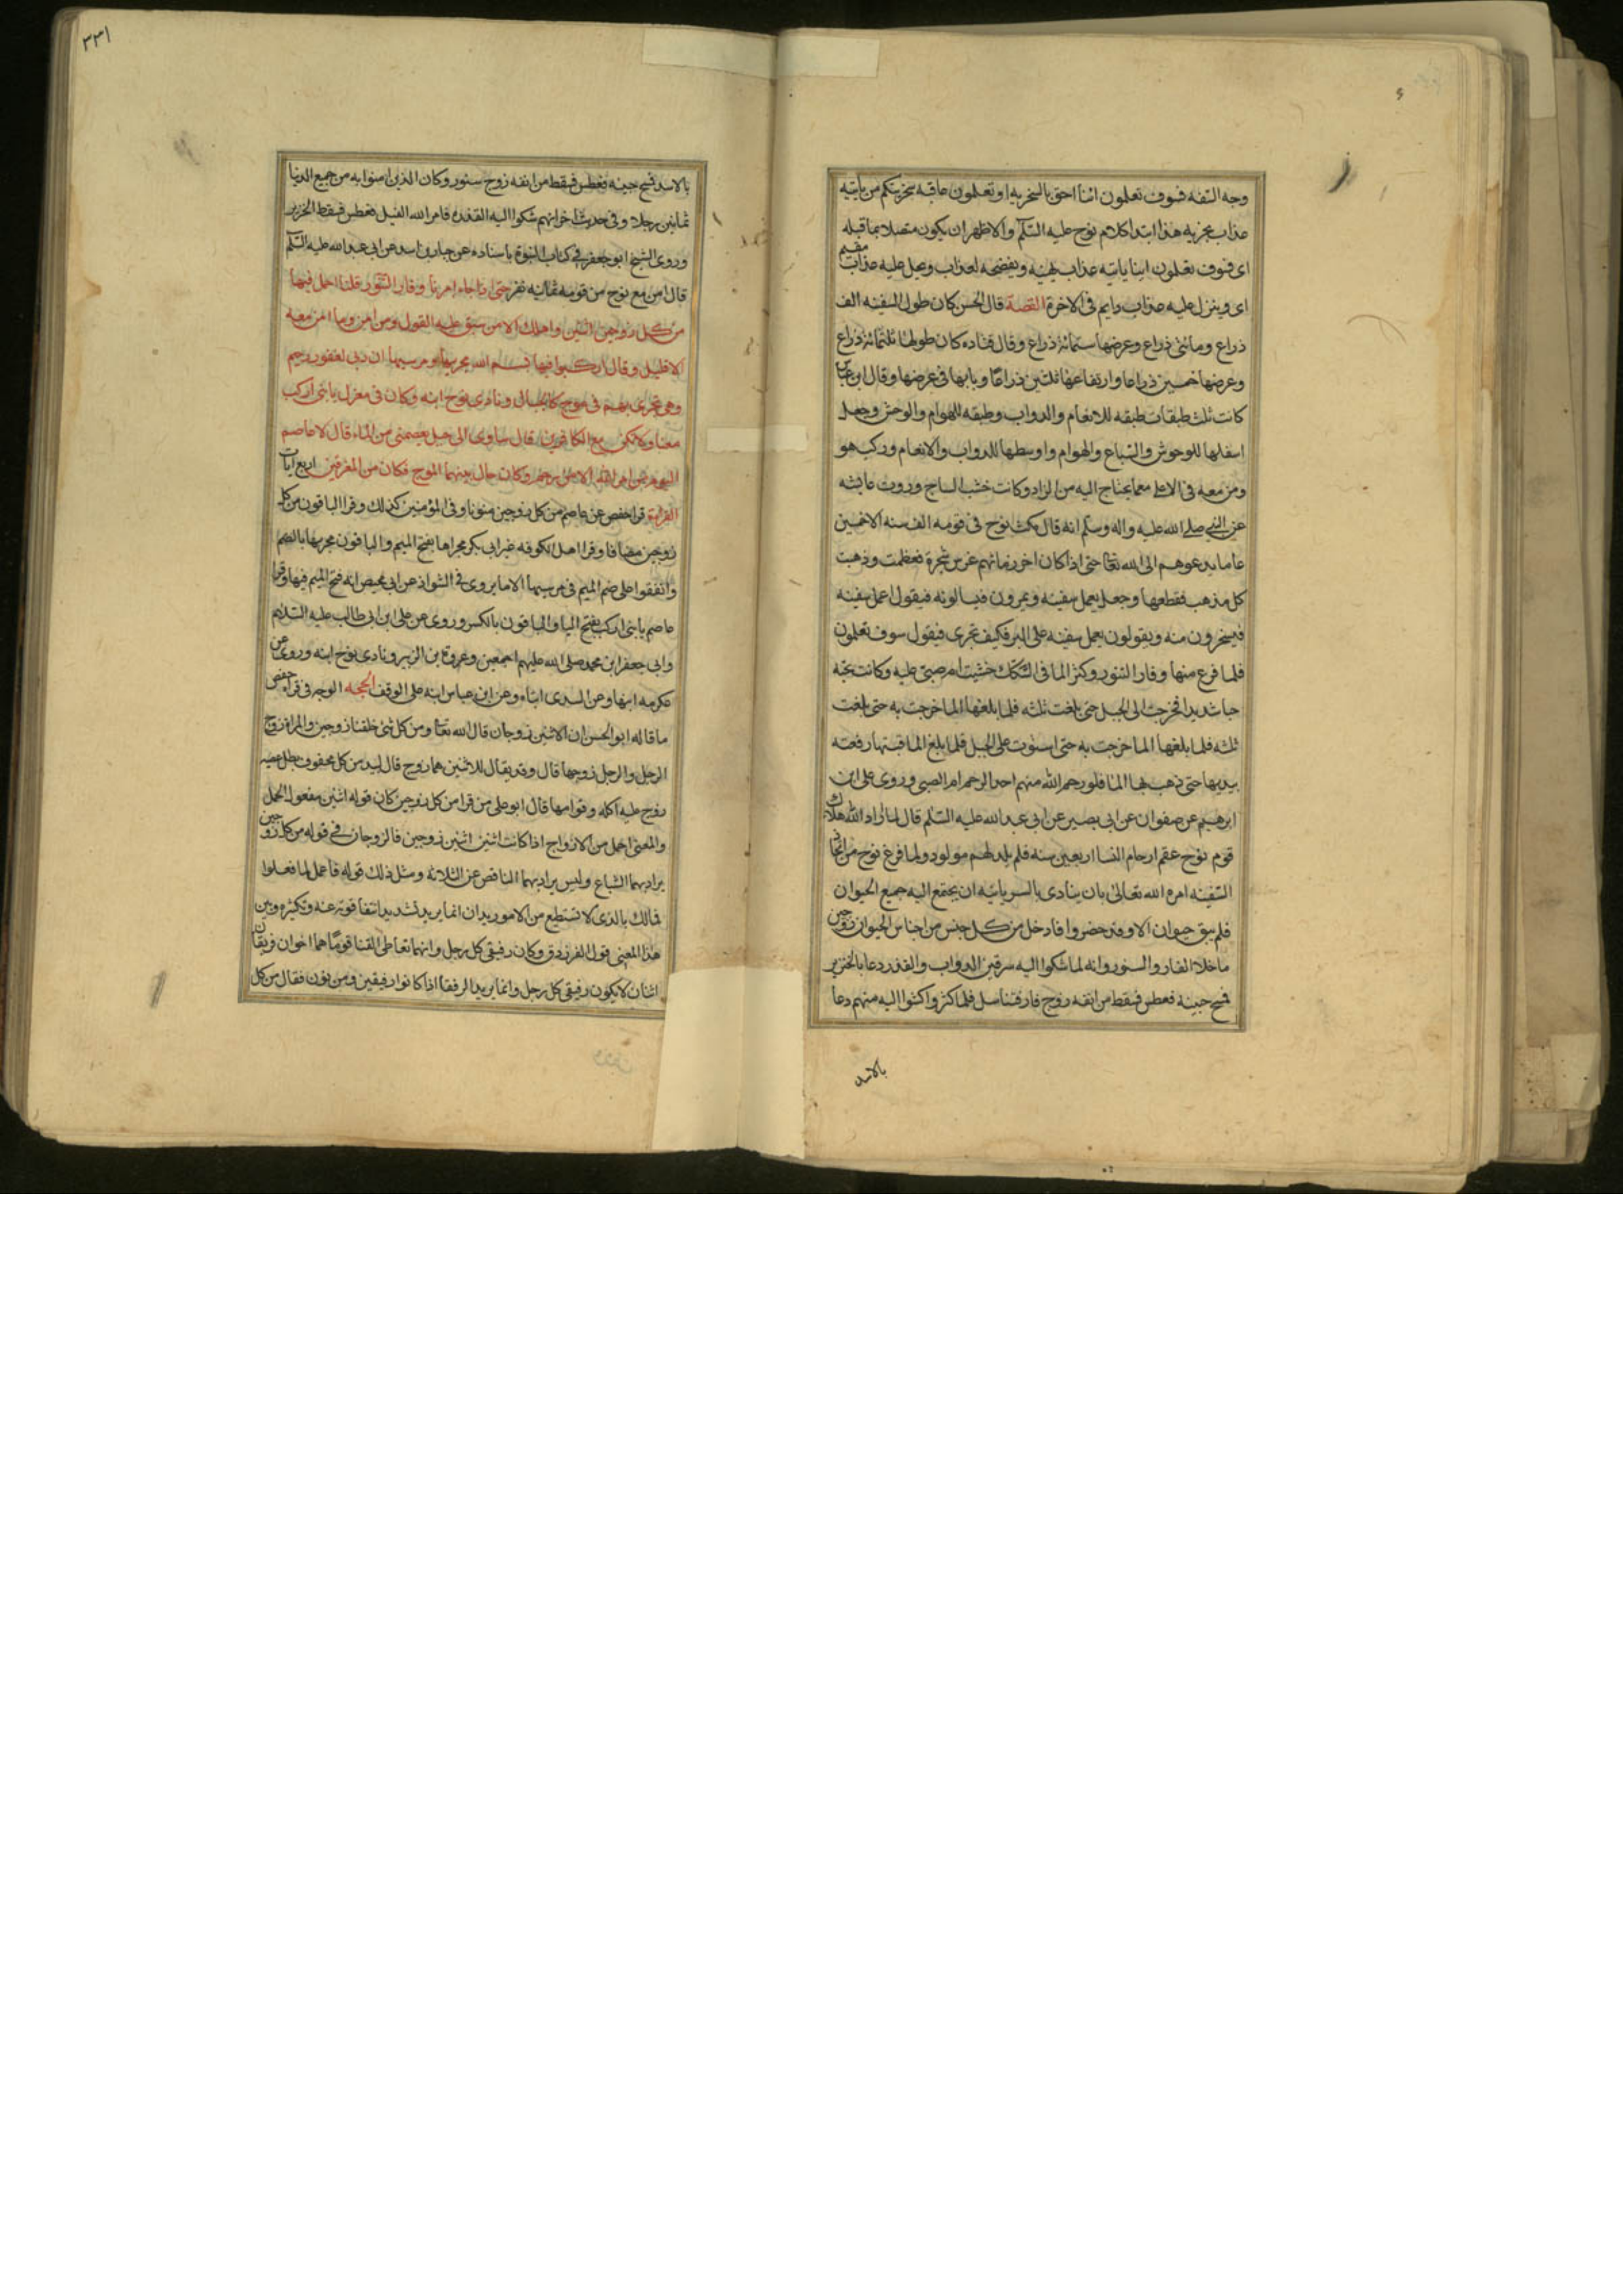 وجه السفه فسوف تعلمون ائنا احق بالسخريه او تعلمون عاقبه سخريتكم من ياتيه
عذاب يخزيه هذا ابتدا كلام نوح عليه السلم والاظهر ان يكون متصلا بما قبله
اى فسوف تعلمون اينا ياتيه عذاب يهينه ويفضحه لعذاب ويحل عليه عذاب مقيم
اى وينزل عليه عذاب دايم فى الاخرة القصة قال الحسن كان طول السفينه الف
ذراع ومائتى ذراع وعرضها ستمائة ذراع وقال قتاده كان طولها ثلثمائة ذراع
وعرضها خمسين ذراعا وارتفاعها ثلثين ذراعًا وبابها فى عرضها وقال ابن عبا
كانت ثلث طبقات طبقه للانعام والدواب وطبقه للهوام والوحش وجعل
اسفلها للوحوش والسباع والهوام واوسطها للدواب والانعام وركب هو
ومن معه فى الاعلى معما يحتاج اليه من الزاد وكانت خشب الساج وروت عايشه
عن النبي صلى الله عليه واله وسلم انه قال مكث نوح فى قومه الف سنه الا خمسين
عاما يدعوهم الى الله تعا حتى اذا كان اخر زمانهم غرس شجرة فعظمت وذهبت
كل مذهب فقطعها وجعل يعمل سفينه ويمرون فيسالونه فيقول اعمل سفينه
فيسخرون منه ويقولون يعمل سفينه على البر فكيف تجرى فيقول سوف تعلمون
فلما فرغ منها وفار التنور وكثر الما فى السكك خشيت ام صبي عليه وكانت تحبه
حبا شديدا فخرجت الى الجبل حتى بلغت ثلثه فلما بلغها الما خرجت به حتى بلغت
ثلثه فلما بلغها الما خرجت به حتى استوت على الجبل فلما بلغ الما رقبتها رفعته
بيديها حتى ذهب بها الما فلو رحم الله منهم احدا لرحم ام الصبي وروى على ابن
ابرهيم عن صفوان عن ابى بصير عن ابى عبد الله عليه السلم قال لما اراد الله هلاك
قوم نوح عقم ارحام النسا اربعين سنه فلم يلد لهم مولود ولما فرغ نوح من اتخاذ
السفينه امره الله تعالى بان ينادى بالسريانيه ان يجتمع اليه جميع الحيوان
فلم يبق حيوان الا وقد حضروا فادخل من كل جنس من اجناس الحيوان زوجين
ما خلا الفار والسنور وانه لما شكوا اليه سرقين الدواب والقذر دعا بالخنزير
فمسح جبينه فعطس فسقط من انفه زوج فار فتناسل فلما كثروا شكوا اليه منهم دعا
بالاسد
٣٣١
بالاسد فمسح جبينه فعطس فسقط من انفه زوج سنور وكان الذين امنوا به من جميع الدنيا
ثمانين رجلا وفى حديث اخر انهم شكوا اليه القذره فامر الله الفيل فعطس فسقط الخنزير
وروى الشيخ ابو جعفر فى كتاب النبوة باسناده عن عن ابى عبد الله عليه السلم
قال امن مع نوح من قومه ثمانيه نفر حتى اذا جاء امرنا وفار التنور قلنا احمل فيها
من كل زوجين اثنين واهلك الا من سبق عليه القول ومن امن وما امن معه
الا قليل وقال اركبوا فيها بسم الله مجريها ومرسيها ان ربى لغفور رحيم
وهى تجرى بهم فى موج كالجبال ونادى نوح ابنه وكان فى معزل يا بنى اركب
معنا ولا تكن مع الكافرين قال ساوى الى جبل يعصمنى من الماء قال لا عاصم
اليوم من امر الله الا من رحم وكان حال بينهما الموج فكان من المغرقين اربع ايات
القراءة قرا حفص عن عاصم من كل زوجين منونا وفى المؤمنين كذلك وقرا الباقون من كل
زوجين مضافا وقرا اهل الكوفه غير ابى بكر مجراها بفتح الميم والباقون مجريها بالضم
واتفقوا على ضم الميم فى مرسيها الا ما يروى فى الشواذ عن ابى محيصن انه فتح الميم فيها وقرا
عاصم يا بنى اركب بفتح اليا والباقون بالكسر وروى عن على ابن ابى طالب عليه السلام
وابى جعفر ابن محمد صلى الله عليهم اجمعين وعروة ابن الزبير ونادى نوح ابنه وروى عن
عكرمه ابنها وعن السدى ابناه وعن ابن عباس ابنه على الوقف الحجه الوجه فى قراه حفص
ما قاله ابو الحسن ان الاثنين زوجان قال الله تعا ومن كل شئ خلقنا زوجين والمراة زوج
الرجل والرجل زوجها قال وقد يقال للاثنين هما زوج قال لبيد من كل محفوف يظل عصيه
زوج عليه كله وقرامها قال ابو على من قرا من كل زوجين كان قوله اثنين مفعول الحمل
والمعنى احمل من الازواج اذا كانت اثنين اثنين زوجين فالزوجان فى قوله من كل زوجين
يراد بهما الشياع وليس يراد بهما الناقص عن الثلاثة ومثل ذلك قوله فاعمل لما فعلوا
فمالك بالذى لا تستطيع من الامور يدان انما يريد تشديد انتفا قوته عنه وتكثيره وبين
هذا المعنى قول الفرزدق وكان رفيقى كل رجل وانهما تعاطى القنا قوما هما اخوان فريقان
اثنان لا يكون رفيقى كل رجل وانما يريد الرفقا اذا كانوا رفيقين ومن نون فقال من كل